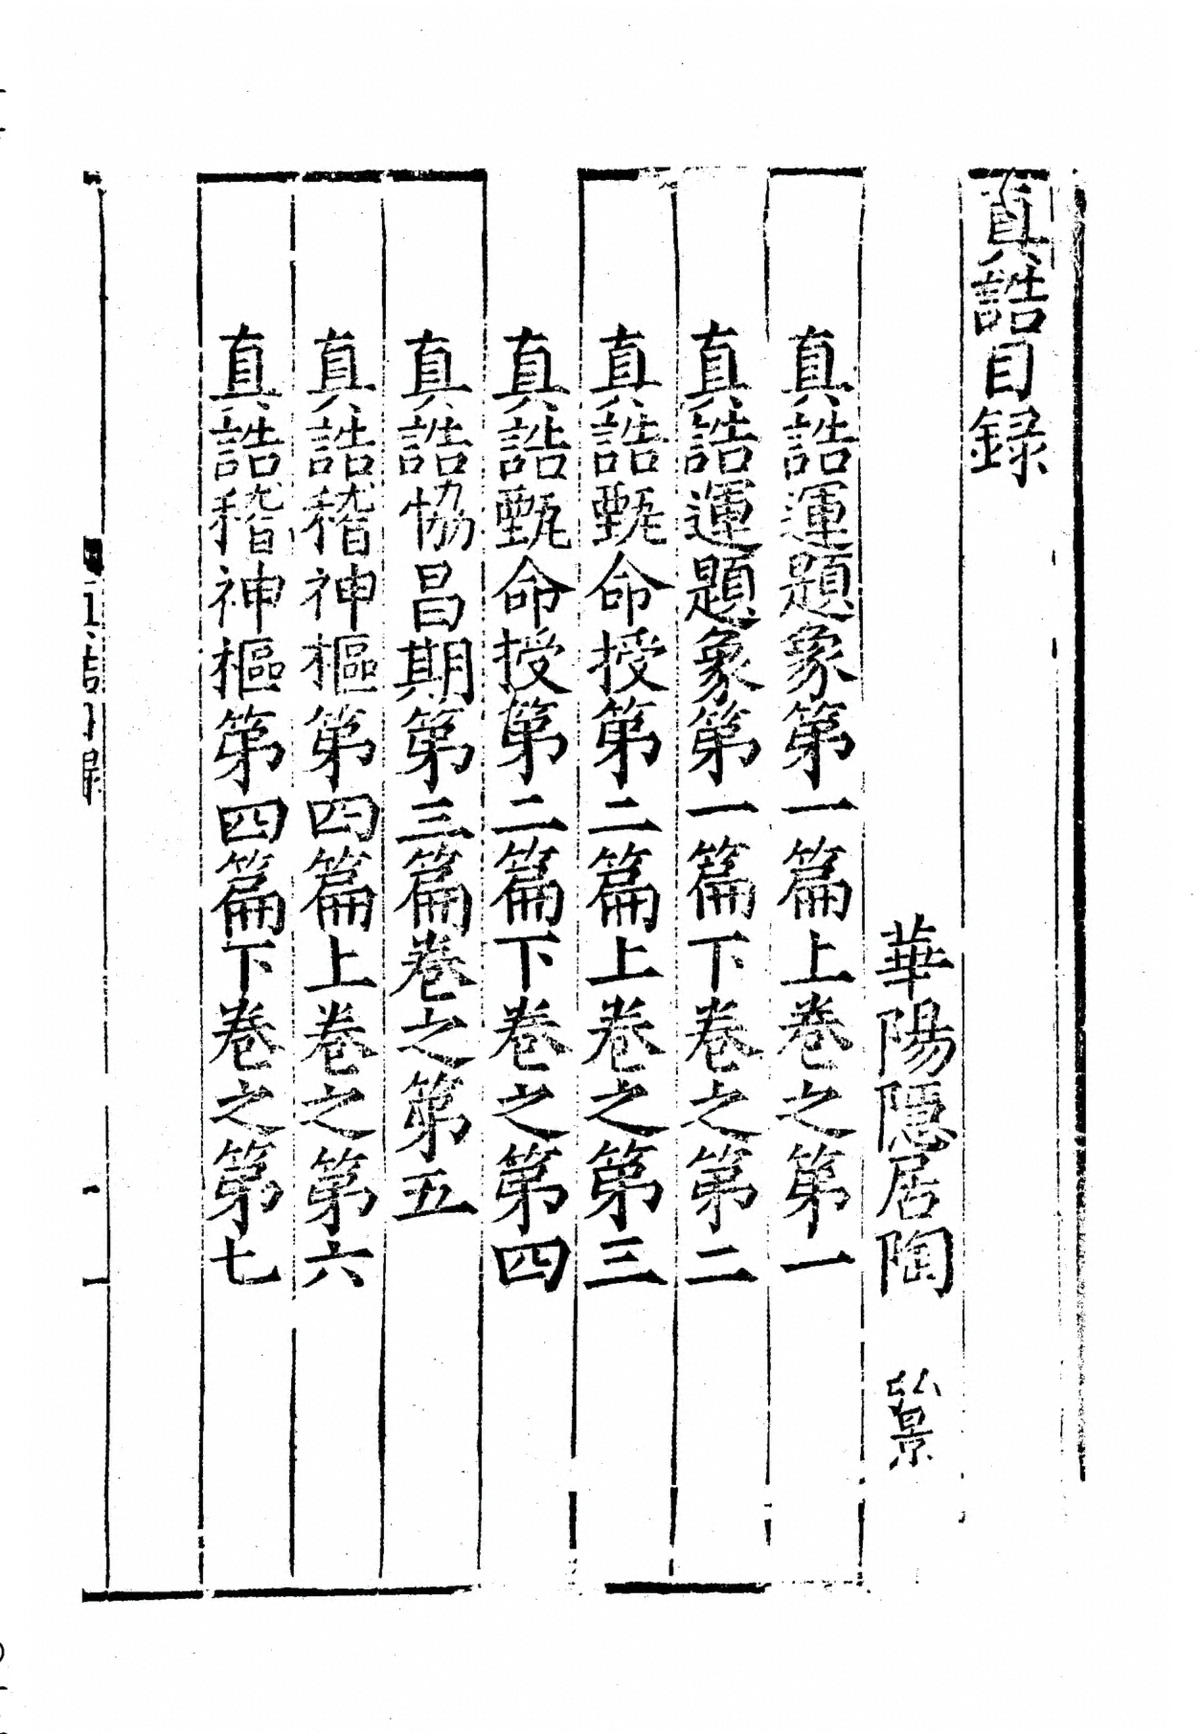 真誥目録
華陽隱居陶 弘景
真誥運題象第一篇上卷之第一
真誥運題象第一篇下卷之第二
真誥甄命授第二篇上卷之第三
真誥甄命授第二篇下卷之第四
真誥協昌期第三篇卷之第五
真誥稽神樞第四篇上卷之第六
真誥稽神樞第四篇下卷之第七